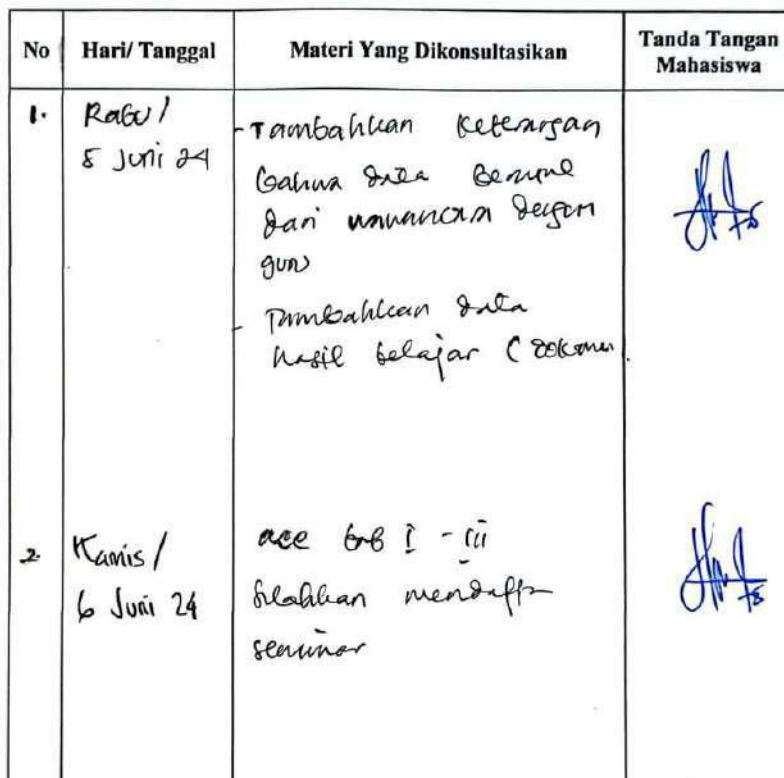 No Hari/ Tanggal Materi Yang Dikonsultasikan Tanda Tangan Mahasiswa
1. Rabu/
5 Juni 24
- Tambahkan keterangan
bahwa data
dari wawancara dengan
guru
- Tambahkan data
hasil belajar ( dokumen
2. Kamis/
6 Juni 24
acc bab I - III
silahkan mendaftar
seminar